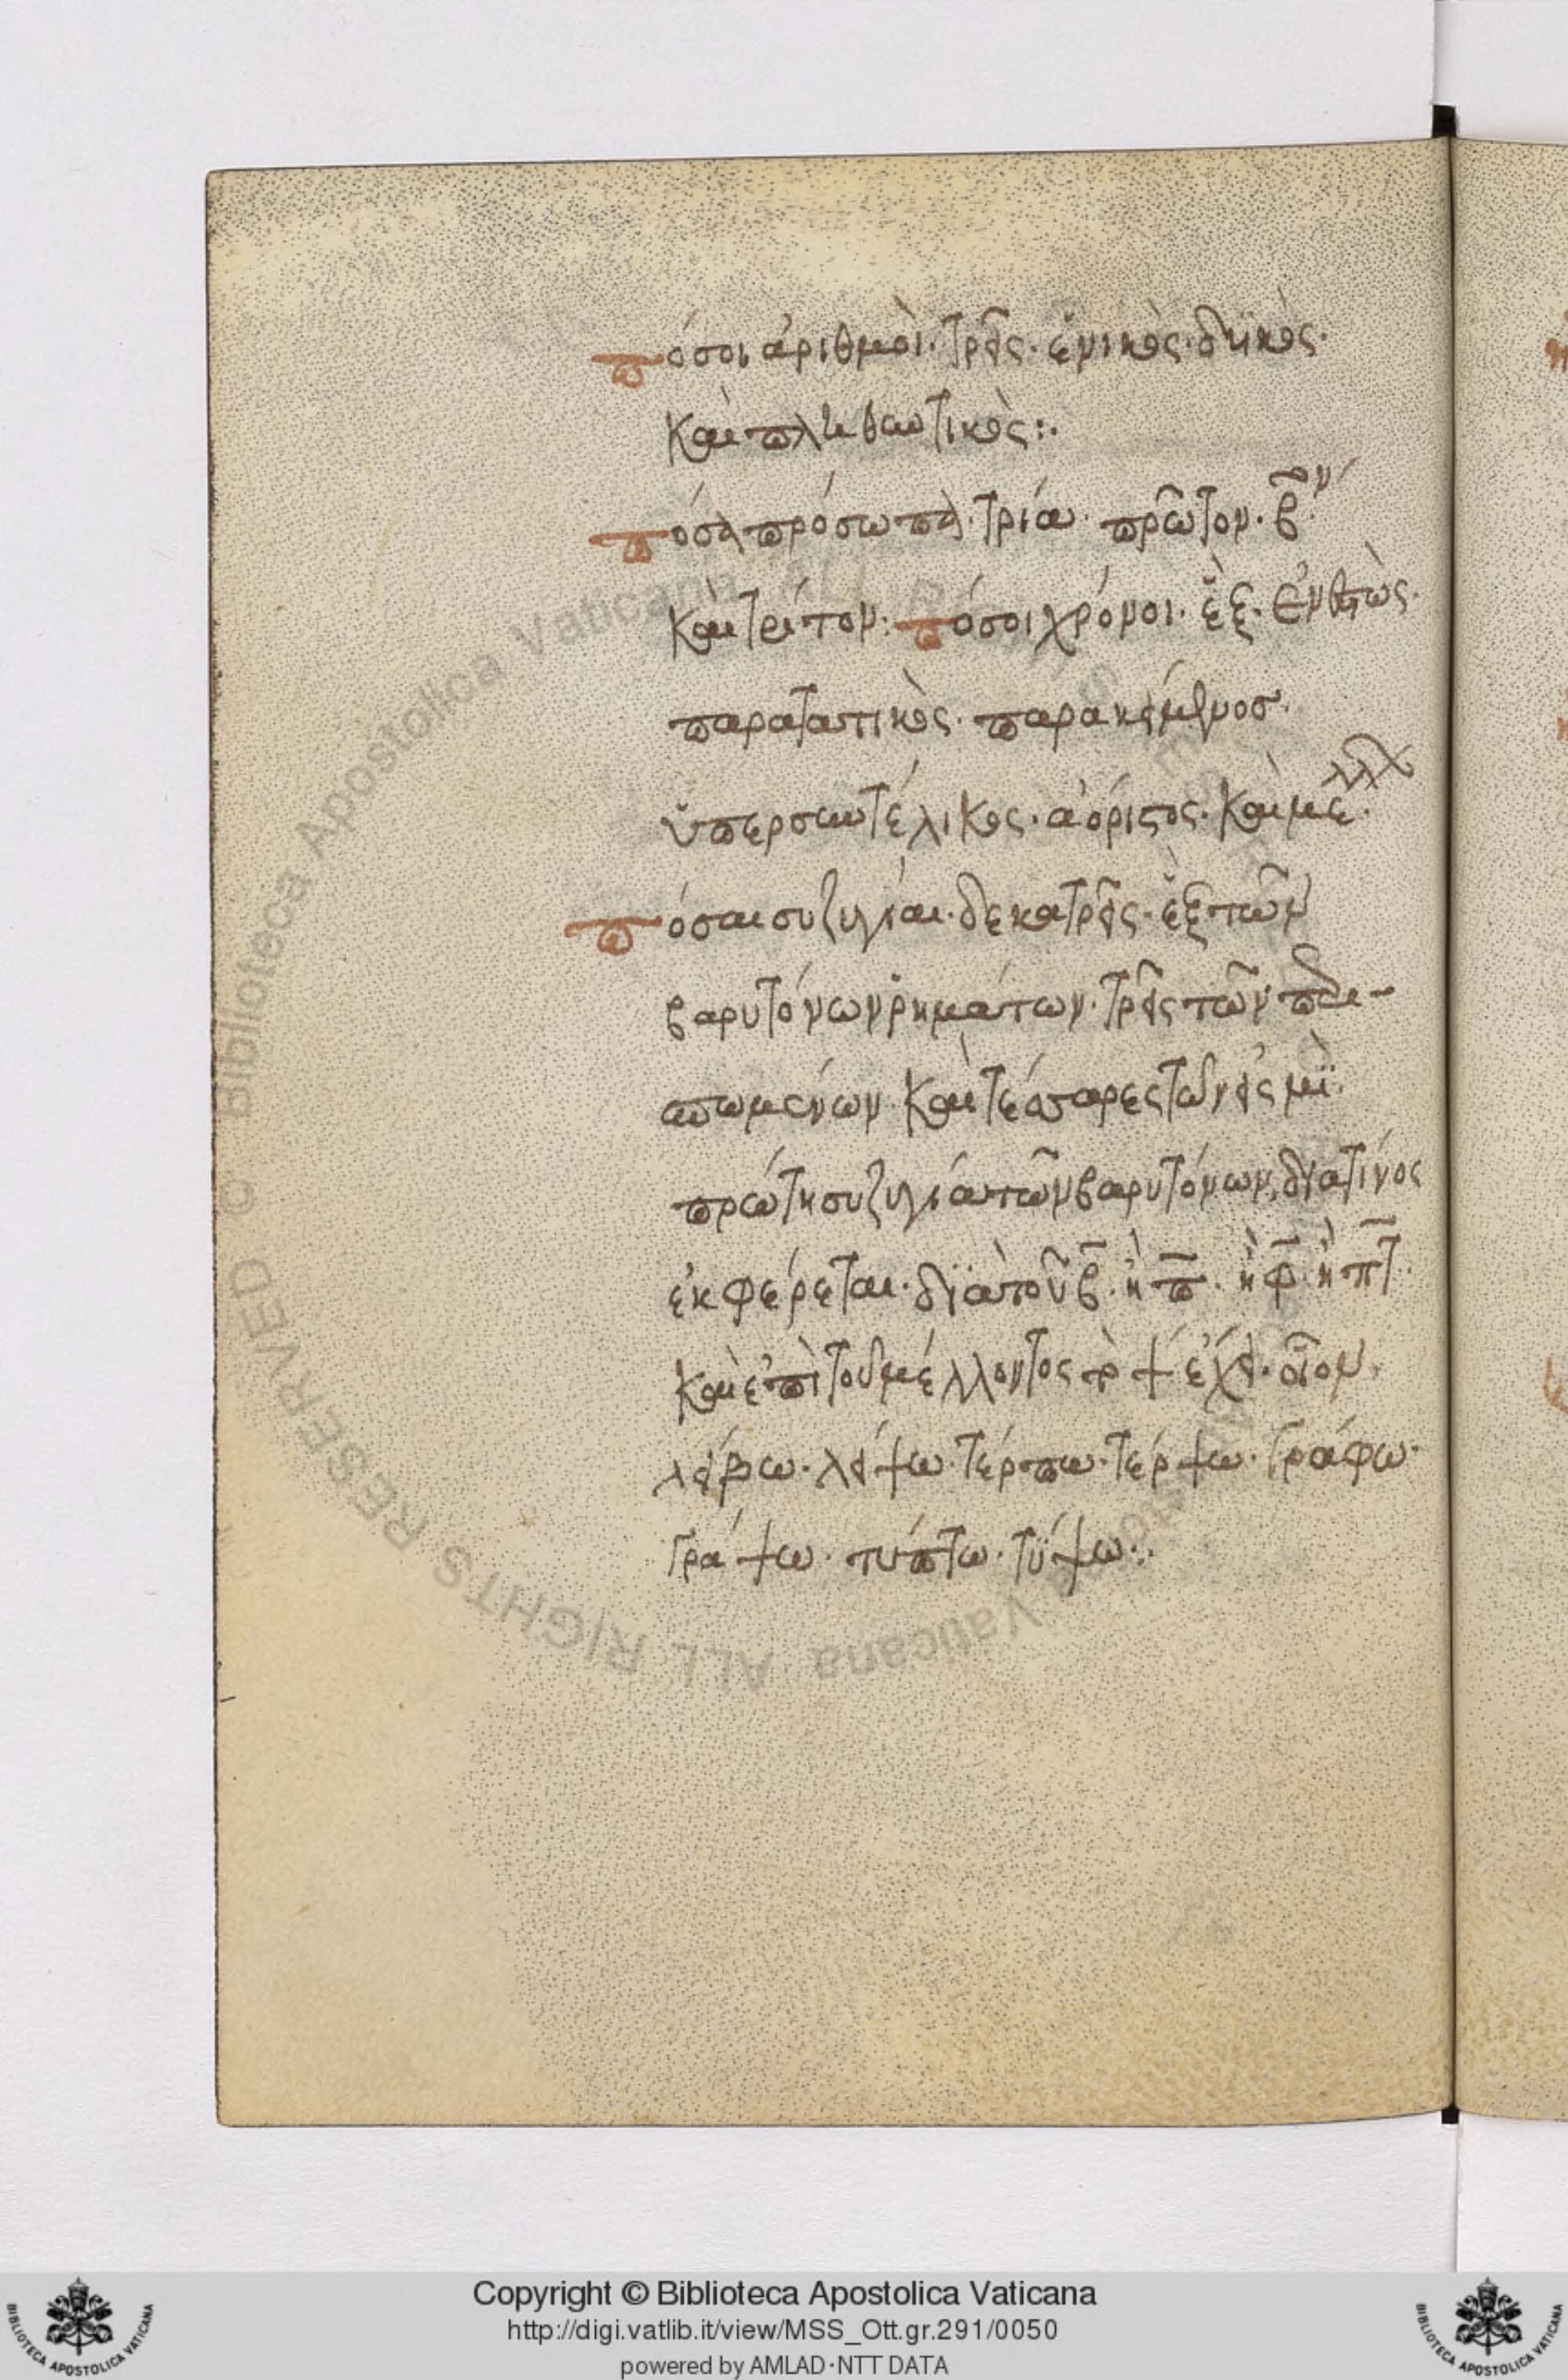 πόσοι ἀριθμοὶ· τρεῖς· ἑνικὸς· δυϊκὸς·
καὶ πληθυντικὸς:·
πόσα πρόσωπα· τρία· πρῶτον· βʹον
καὶ τρίτον: πόσοι χρόνοι· ἓξ· ἐνεστὼς·
παρατατικὸς· παρακείμενοσ·
ὑπερσυντέλικος· ἀόριστος· καὶ μέλλων·
πόσαι συζυγίαι· δεκατρεῖς· ἓξ τῶν
βαρυτόνων ῥημάτων· τρεῖς τῶν περι-
σπωμένων καὶ τέσσαρες τῶν εἰς μϊ·
πρώτη συζυγία τῶν βαρυτόνων, διατίνος
ἐκφέρεται· δϊὰ τοῦ β· ἢ π· ἢ φ· ἢ πτ·
καὶ ἐπὶ τοῦ μέλλοντος τὸ ψ ἔχει· οἷον,
λείβω· λείψω· τέρπω· τέρψω· γράφω·
γράψω· τύπτω· τύψω:·
Copyright © Biblioteca Apostolica Vaticana
http://digi.vatlib.it/view/MSS_Ott.gr.291/0050
powered by AMLAD·NTT DATA
BIBLIOTECA APOSTOLICA VATICANA
BIBLIOTECA APOSTOLICA VATICANA